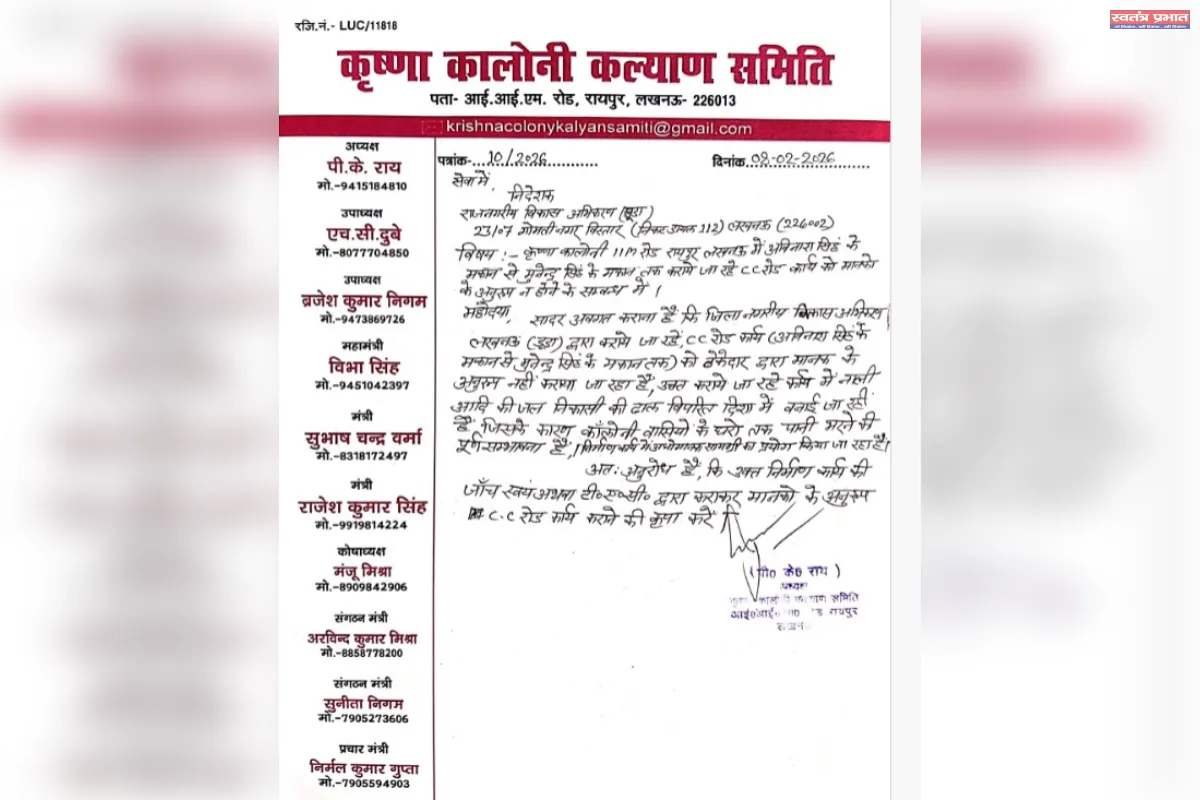 स्वतंत्र प्रभात
रजि.नं.- LUC/11818
कृष्णा कालोनी कल्याण समिति
पता- आई.आई.एम. रोड, रायपुर, लखनऊ- 226013
krishnacolonykalyansamiti@gmail.com
अध्यक्ष
पी.के. राय
मो.-9415184810
उपाध्यक्ष
एच.सी.दुबे
मो.-8077704850
उपाध्यक्ष
ब्रजेश कुमार निगम
मो.-9473869726
महामंत्री
विभा सिंह
मो.-9451042397
मंत्री
सुभाष चन्द्र वर्मा
मो.-8318172497
मंत्री
राजेश कुमार सिंह
मो.-9919814224
कोषाध्यक्ष
मंजू मिश्रा
मो.-8909842906
संगठन मंत्री
अरविन्द कुमार मिश्रा
मो.-8858778200
संगठन मंत्री
सुनीता निगम
मो.-7905273606
प्रचार मंत्री
निर्मल कुमार गुप्ता
मो.-7905594903
पत्रांक-....10/2026............
दिनांक...08-02-2026........
सेवा में,
निदेशक
राजनगरीय विकास अभिकरण (सूडा)
23/07 गोमतीनगर विस्तार (निकट डायल 112) लखनऊ (226002)
विषय :- कृष्णा कालोनी IIM रोड रायपुर लखनऊ में अविनाश सिंह के
मकान से मुनेन्द्र सिंह के मकान तक कराये जा रहे CC रोड कार्य को मानको
के अनुरूप न होने के सम्बन्ध में।
महोदया,
सादर अवगत कराना है कि जिला नगरीय विकास अभिकरण
लखनऊ (डूडा) द्वारा कराये जा रहे, CC रोड कार्य (अविनाश सिंह के
मकान से मुनेन्द्र सिंह के मकान तक) को ठेकेदार द्वारा मानक के
अनुरूप नहीं कराया जा रहा है, उक्त कराये जा रहे कार्य में नाली
आदि की जल निकासी की ढाल विपरित दिशा में बनाई जा रही
है, जिसके कारण कॉलोनी वासियो के घरो तक पानी भरने की
पूर्ण सम्भावना है, निर्माण कार्य में अधोमानक सामग्री का प्रयोग किया जा रहा है।
अतः अनुरोध है, कि उक्त निर्माण कार्य की
जाँच स्वयं अथवा टी०ए०सी० द्वारा कराकर मानको के अनुरूप
C.C रोड कार्य कराने की कृपा करें।
(पी० के० राय)
अध्यक्ष
कालोनी कल्याण समिति
रायपुर
लखनऊ